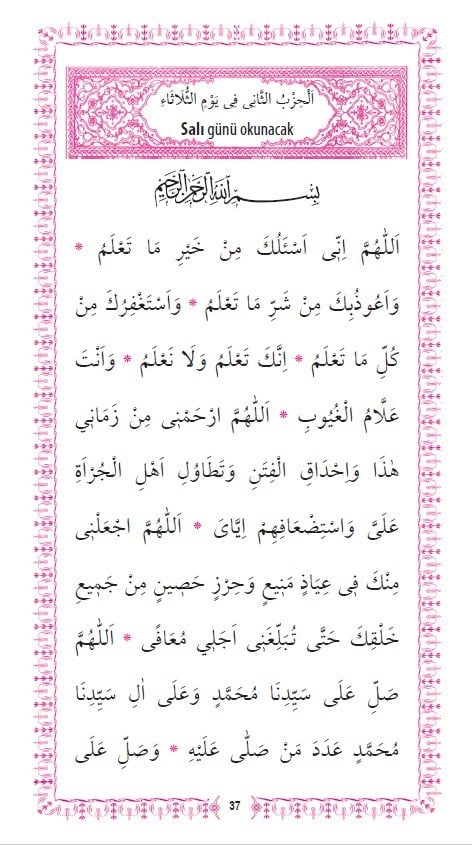 اَلْحِزْبُ الثَّانٖى فٖى يَوْمِ الثُّلَاثَاءِ
Salı günü okunacak
بِسْــمِ اللّٰهِ الرَّحْمٰنِ الرَّحٖيمِ
اَللّٰهُمَّ اِنّٖى اَسْئَلُكَ مِنْ خَيْرِ مَا تَعْلَمُ *
وَاَعُوذُبِكَ مِنْ شَرِّ مَا تَعْلَمُ * وَاَسْتَغْفِرُكَ مِنْ
كُلِّ مَا تَعْلَمُ * اِنَّكَ تَعْلَمُ وَلَا نَعْلَمُ * وَاَنْتَ
عَلَّامُ الْغُيُوبِ * اَللّٰهُمَّ ارْحَمْنٖى مِنْ زَمَانٖي
هٰذَا وَاِحْدَاقِ الْفِتَنِ وَتَطَاوُلِ اَهْلِ الْجُرْاَةِ
عَلَىَّ وَاسْتِضْعَافِهِمْ اِيَّاىَ * اَللّٰهُمَّ اجْعَلْنٖى
مِنْكَ فٖى عِيَاذٍ مَنٖيعٍ وَحِرْزٍ حَصٖينٍ مِنْ جَمٖيعِ
خَلْقِكَ حَتَّى تُبَلِّغَنٖى اَجَلٖي مُعَافًى * اَللّٰهُمَّ
صَلِّ عَلَى سَيِّدِنَا مُحَمَّدٍ وَعَلَى اٰلِ سَيِّدِنَا
مُحَمَّدٍ عَدَدَ مَنْ صَلّٰى عَلَيْهِ * وَصَلِّ عَلَى
37